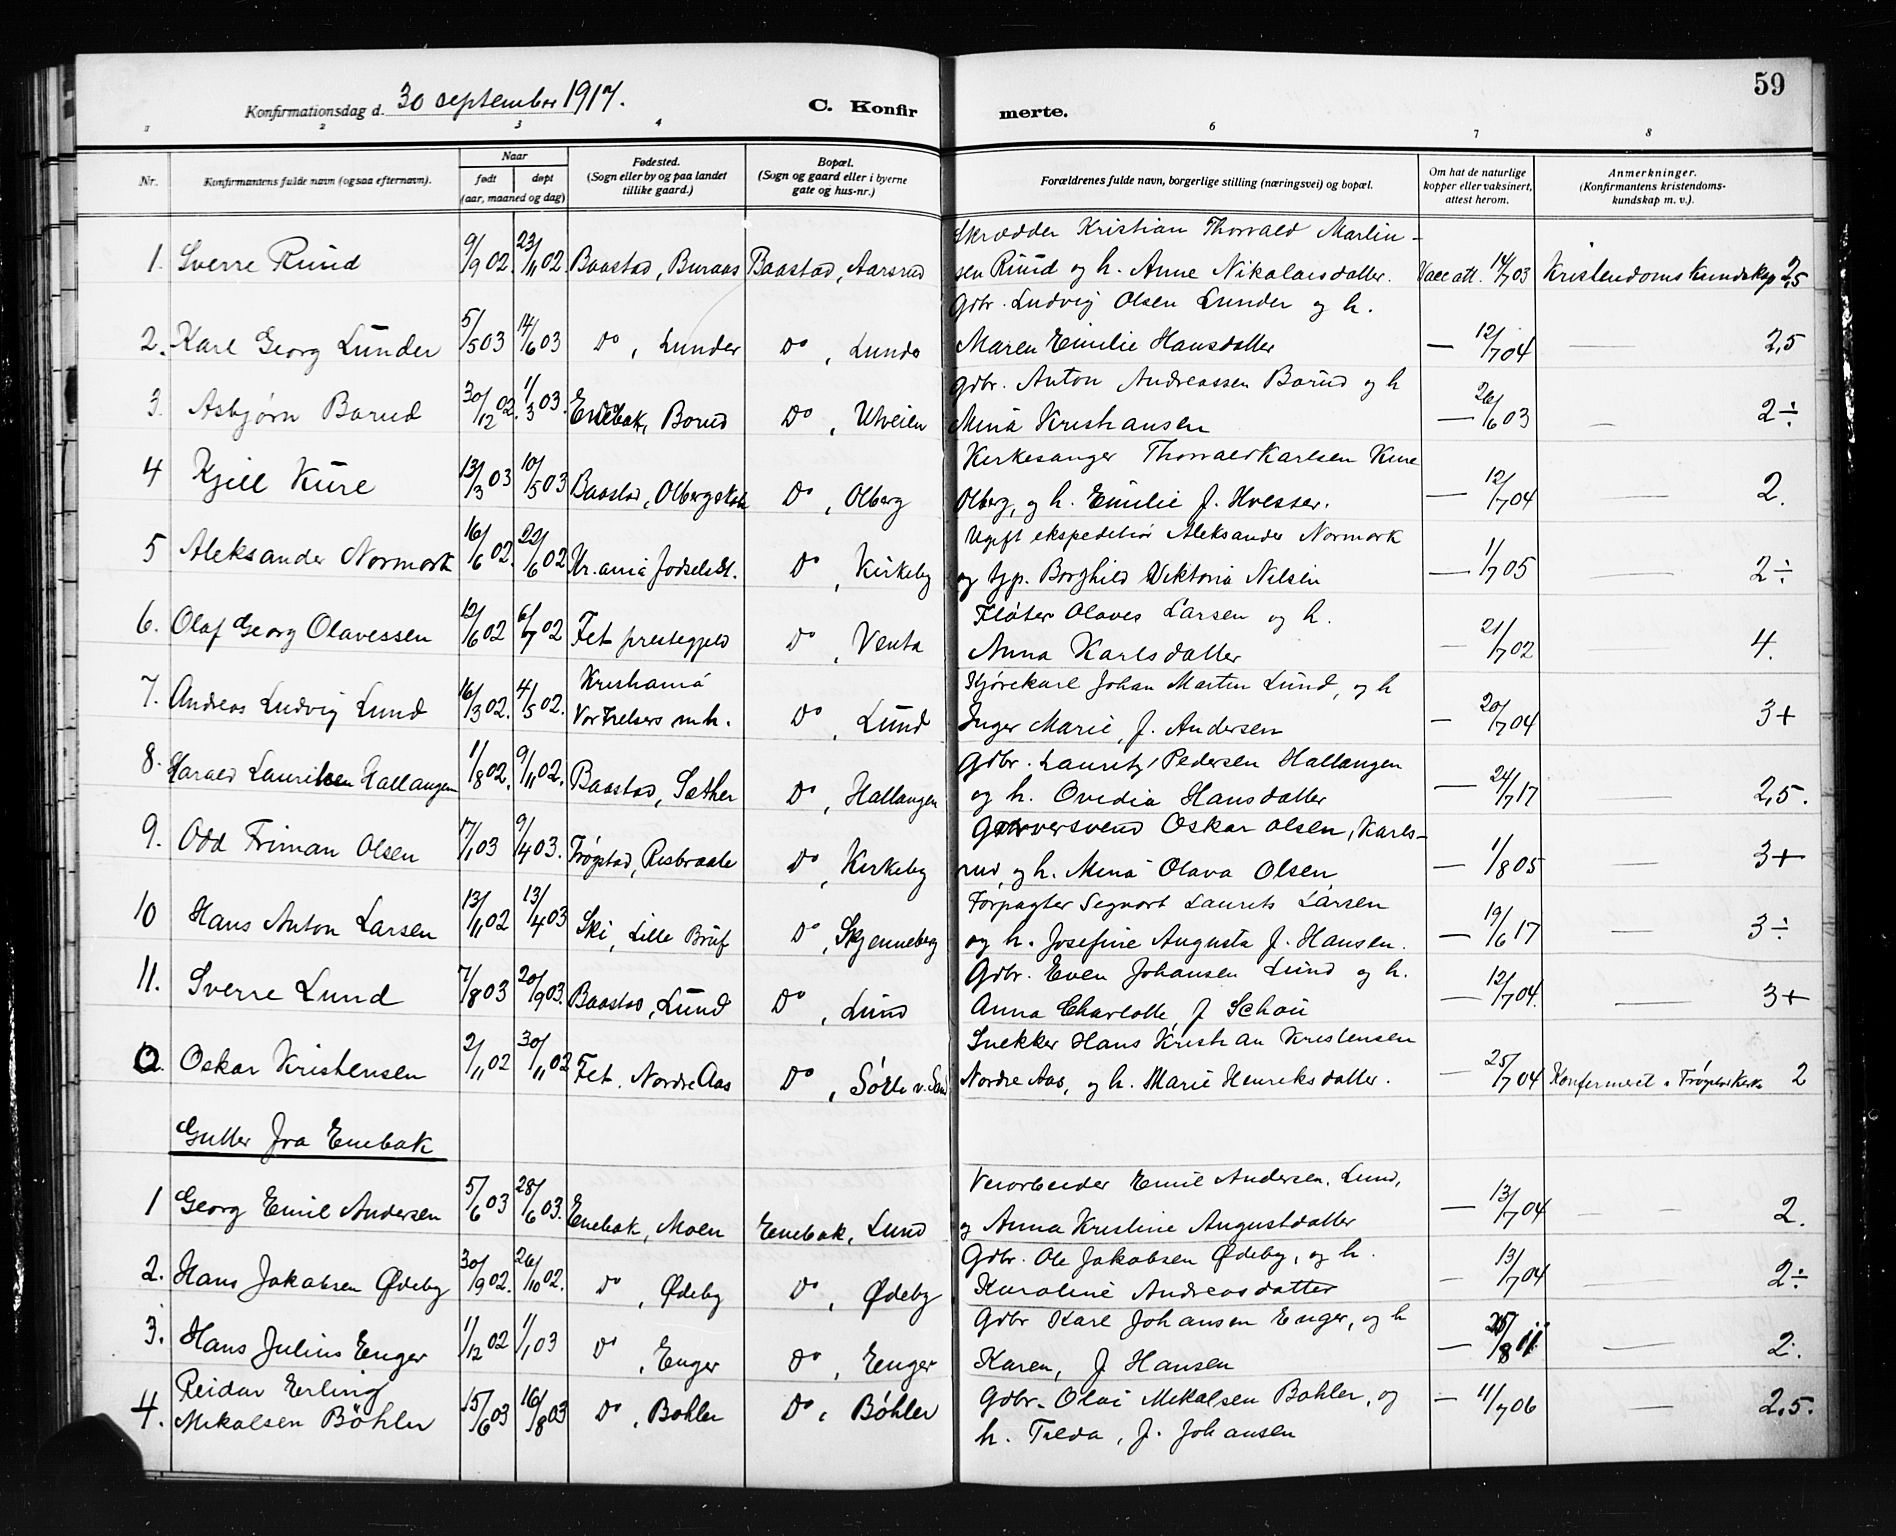 59
Konfirmationsdag d. 30 september 1917.
C. Konfirmerte.
1 2 3 4 6 7 8
Nr. Konfirmantens fulde navn (ogsaa efternavn). Naar født døpt (aar, maaned og dag) Fødested. (Sogn eller by og paa landet tillike gaard.) Bopæl. (Sogn og gaard eller i byerne gate og hus-nr.) Forældrenes fulde navn, borgerlige stilling (næringsvei) og bopæl. Om hat de naturlige kopper eller vaksinert, attest herom. Anmerkninger. (Konfirmantens kristendomskundskap m. v.).
Skrædder Kristian Thorvald Martin-
1. Sverre Ruud 9/9 02. 23/11 02 Baastad, Buraas Baastad, Aarsrud sen Ruud og h. Anne Nikolaisdatter. Vacc att. 14/7 03 Kristendomskundskap 2,5
Gdbr. Ludvig Olsen Lunder og h.
2. Karl Georg Lunder 5/5 03 14/6 03 Do, Lunder Do, Lunde Maren Emilie Hansdatter — 12/7 04 — 2,5
Gdbr. Anton Andreassen Borud og h
3. Asbjørn Borud 30/12 02. 1/3 03. Enebak, Borud Do, Utveien Mina Kristiansen — 26/6 03 — 2÷
Kirkesanger Thorvald Karlsen Kure
4 Kjell Kure 13/3 03 10/5 03 Baastad, Olberg skole Do, Olberg Olberg, og h. Emilie f. Hvesser. — 12/7 04 — 2.
Ugift ekspeditør Aleksander Normork
5 Aleksander Normork 16/6 02. 22/6 02 Kr.ania fødselsst. Do, Kirkeby og tjp. Borghild Viktoria Nilsen — 1/7 05 — 2÷
Fløter Olaves Larsen og h.
6. Olaf Georg Olavessen 12/6 02 6/7 02 Fet prestegjeld Do, Venta Anna Karlsdatter — 21/7 02 — 4.
Kristiania Kjørekarl Johan Martin Lund, og h
7. Andreas Ludvig Lund 16/3 02. 4/5 02. Vor Frelsers mh. Do, Lund Inger Marie, f. Andersen — 20/7 04 — 3+
Gdbr. Lauritz Pedersen Hallangen
8. Harald Lauritsen Hallangen 1/8 02. 9/11 02. Baastad, Sæther Do, Hallangen og h. Ovedia Hansdatter — 24/7 17 — 2,5.
Garversvend Oskar Olsen, Karls-
9. Odd Friman Olsen 17/1 03 9/4 03. Trøgstad, Risbraate Do, Kirkeby rud, og h. Mina Olava Olsen — 1/8 05 — 3+
Forpagter Segvort Laurits Larsen
10 Hans Anton Larsen 13/11 02 13/4 03 Ski, Lille Bruf Do, Skjenneberg og h. Josefine Augusta f. Hansen. — 19/6 17 — 3÷
Gdbr. Even Johansen Lund og h.
11. Sverre Lund 7/8 03 20/9 03. Baastad, Lund Do, Lund Anna Charlotte f Schou — 12/7 04. — 3+
Snekker Hans Kristian Kristensen
12. Oskar Kristensen 2/11 02 30/11 02 Fet. Nordre Aas Do, Nordre Aas, og h. Marie Henriksdatter. — 25/7 04 Konfirmeret i Trøgstad Kirke 2
Gutter fra Enebak
Emil Andersen, Lund,
1 Georg Emil Andersen 5/6 03 28/6 03. Enebak, Moen Enebak, Lund og Anna Kristine Augustdatter — 13/7 04 — — 2.
Gdbr. Ole Jakobsen Ødeby, og h.
2. Hans Jakobsen Ødeby 30/9 02. 26/10 02. Do, Ødeby Do, Ødeby Karoline Andreasdatter — 13/7 04 2÷
Gdbr Karl Johansen Enger, og h
3. Hans Julius Enger 1/12 02 1/1 03 Do, Enger Do, Enger Karen, f Hansen — 25/8 11 — 2.
Reidar Erling Gdbr. Olai Mikalsen Bøhler, og
4. Mikalsen Bøhler 15/6 03 16/8 03 Do, Bøhler Do, Bøhler — 11/7 06 — 2,5.
h. Tilda, f. Johansen